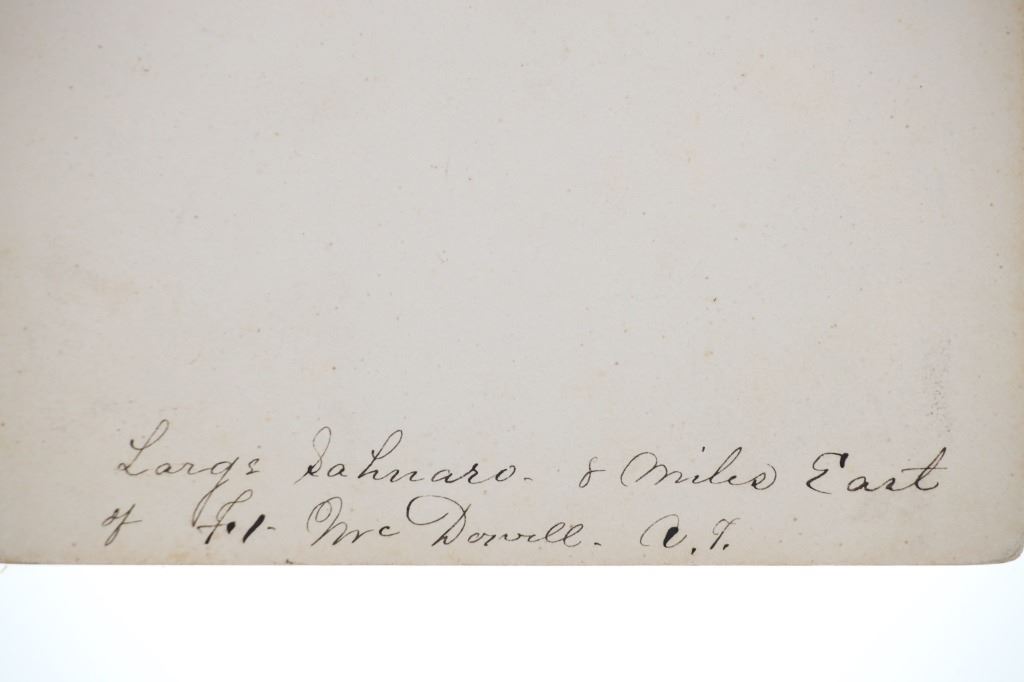 Large Sahuaro. 8 Miles East
of Ft. McDowell. A.T.